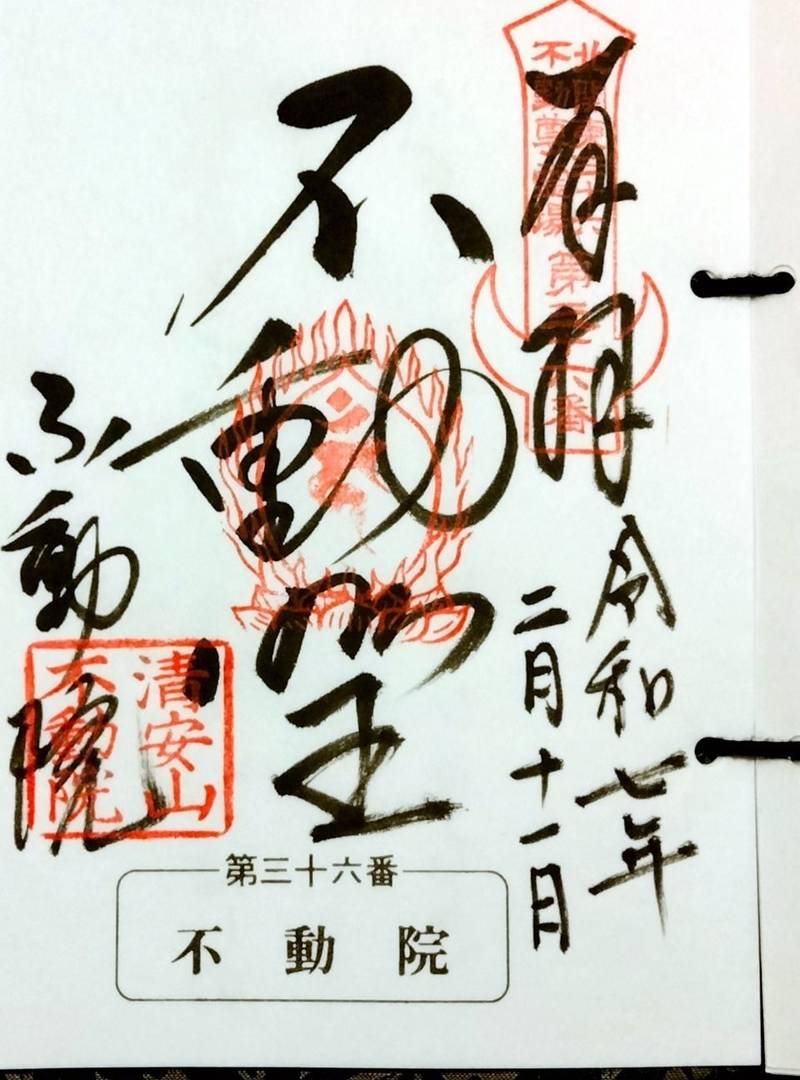 奉拝
北関東三十六
不動尊霊場
第三十六番
令和七年
二月十一日
不動明王
不動院
清安山
不動院
第三十六番
不動院